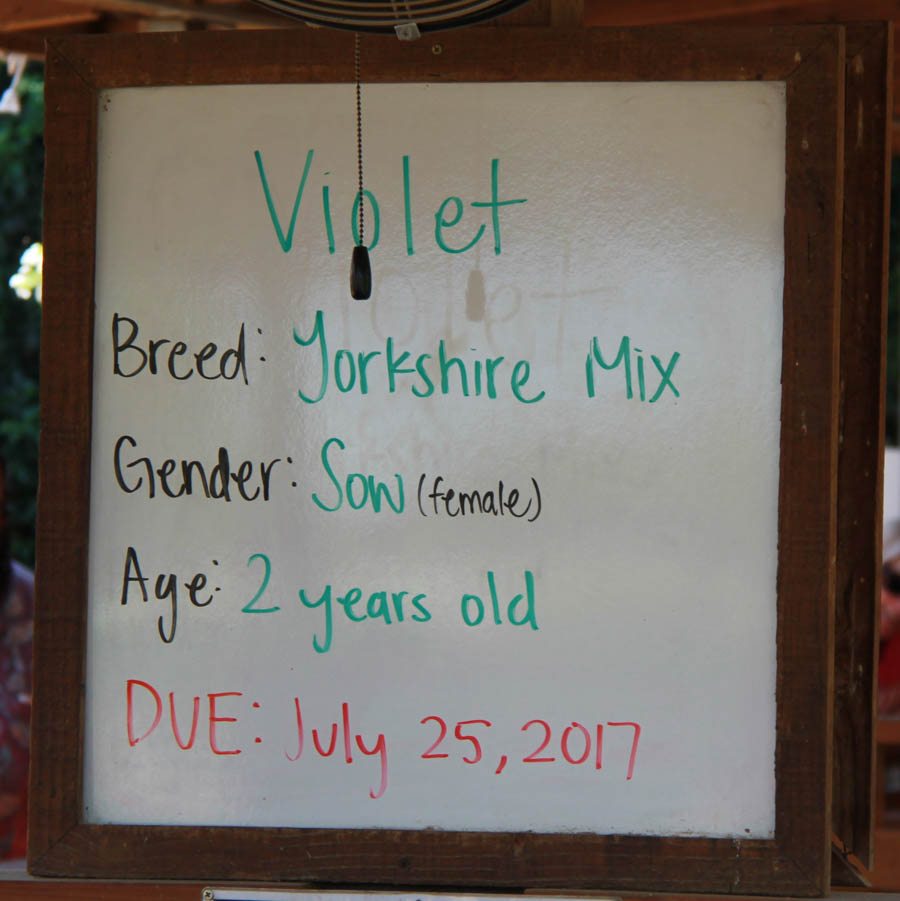 Violet
Breed: Yorkshire Mix
Gender: Sow (female)
Age: 2 years old
DUE: July 25, 2017